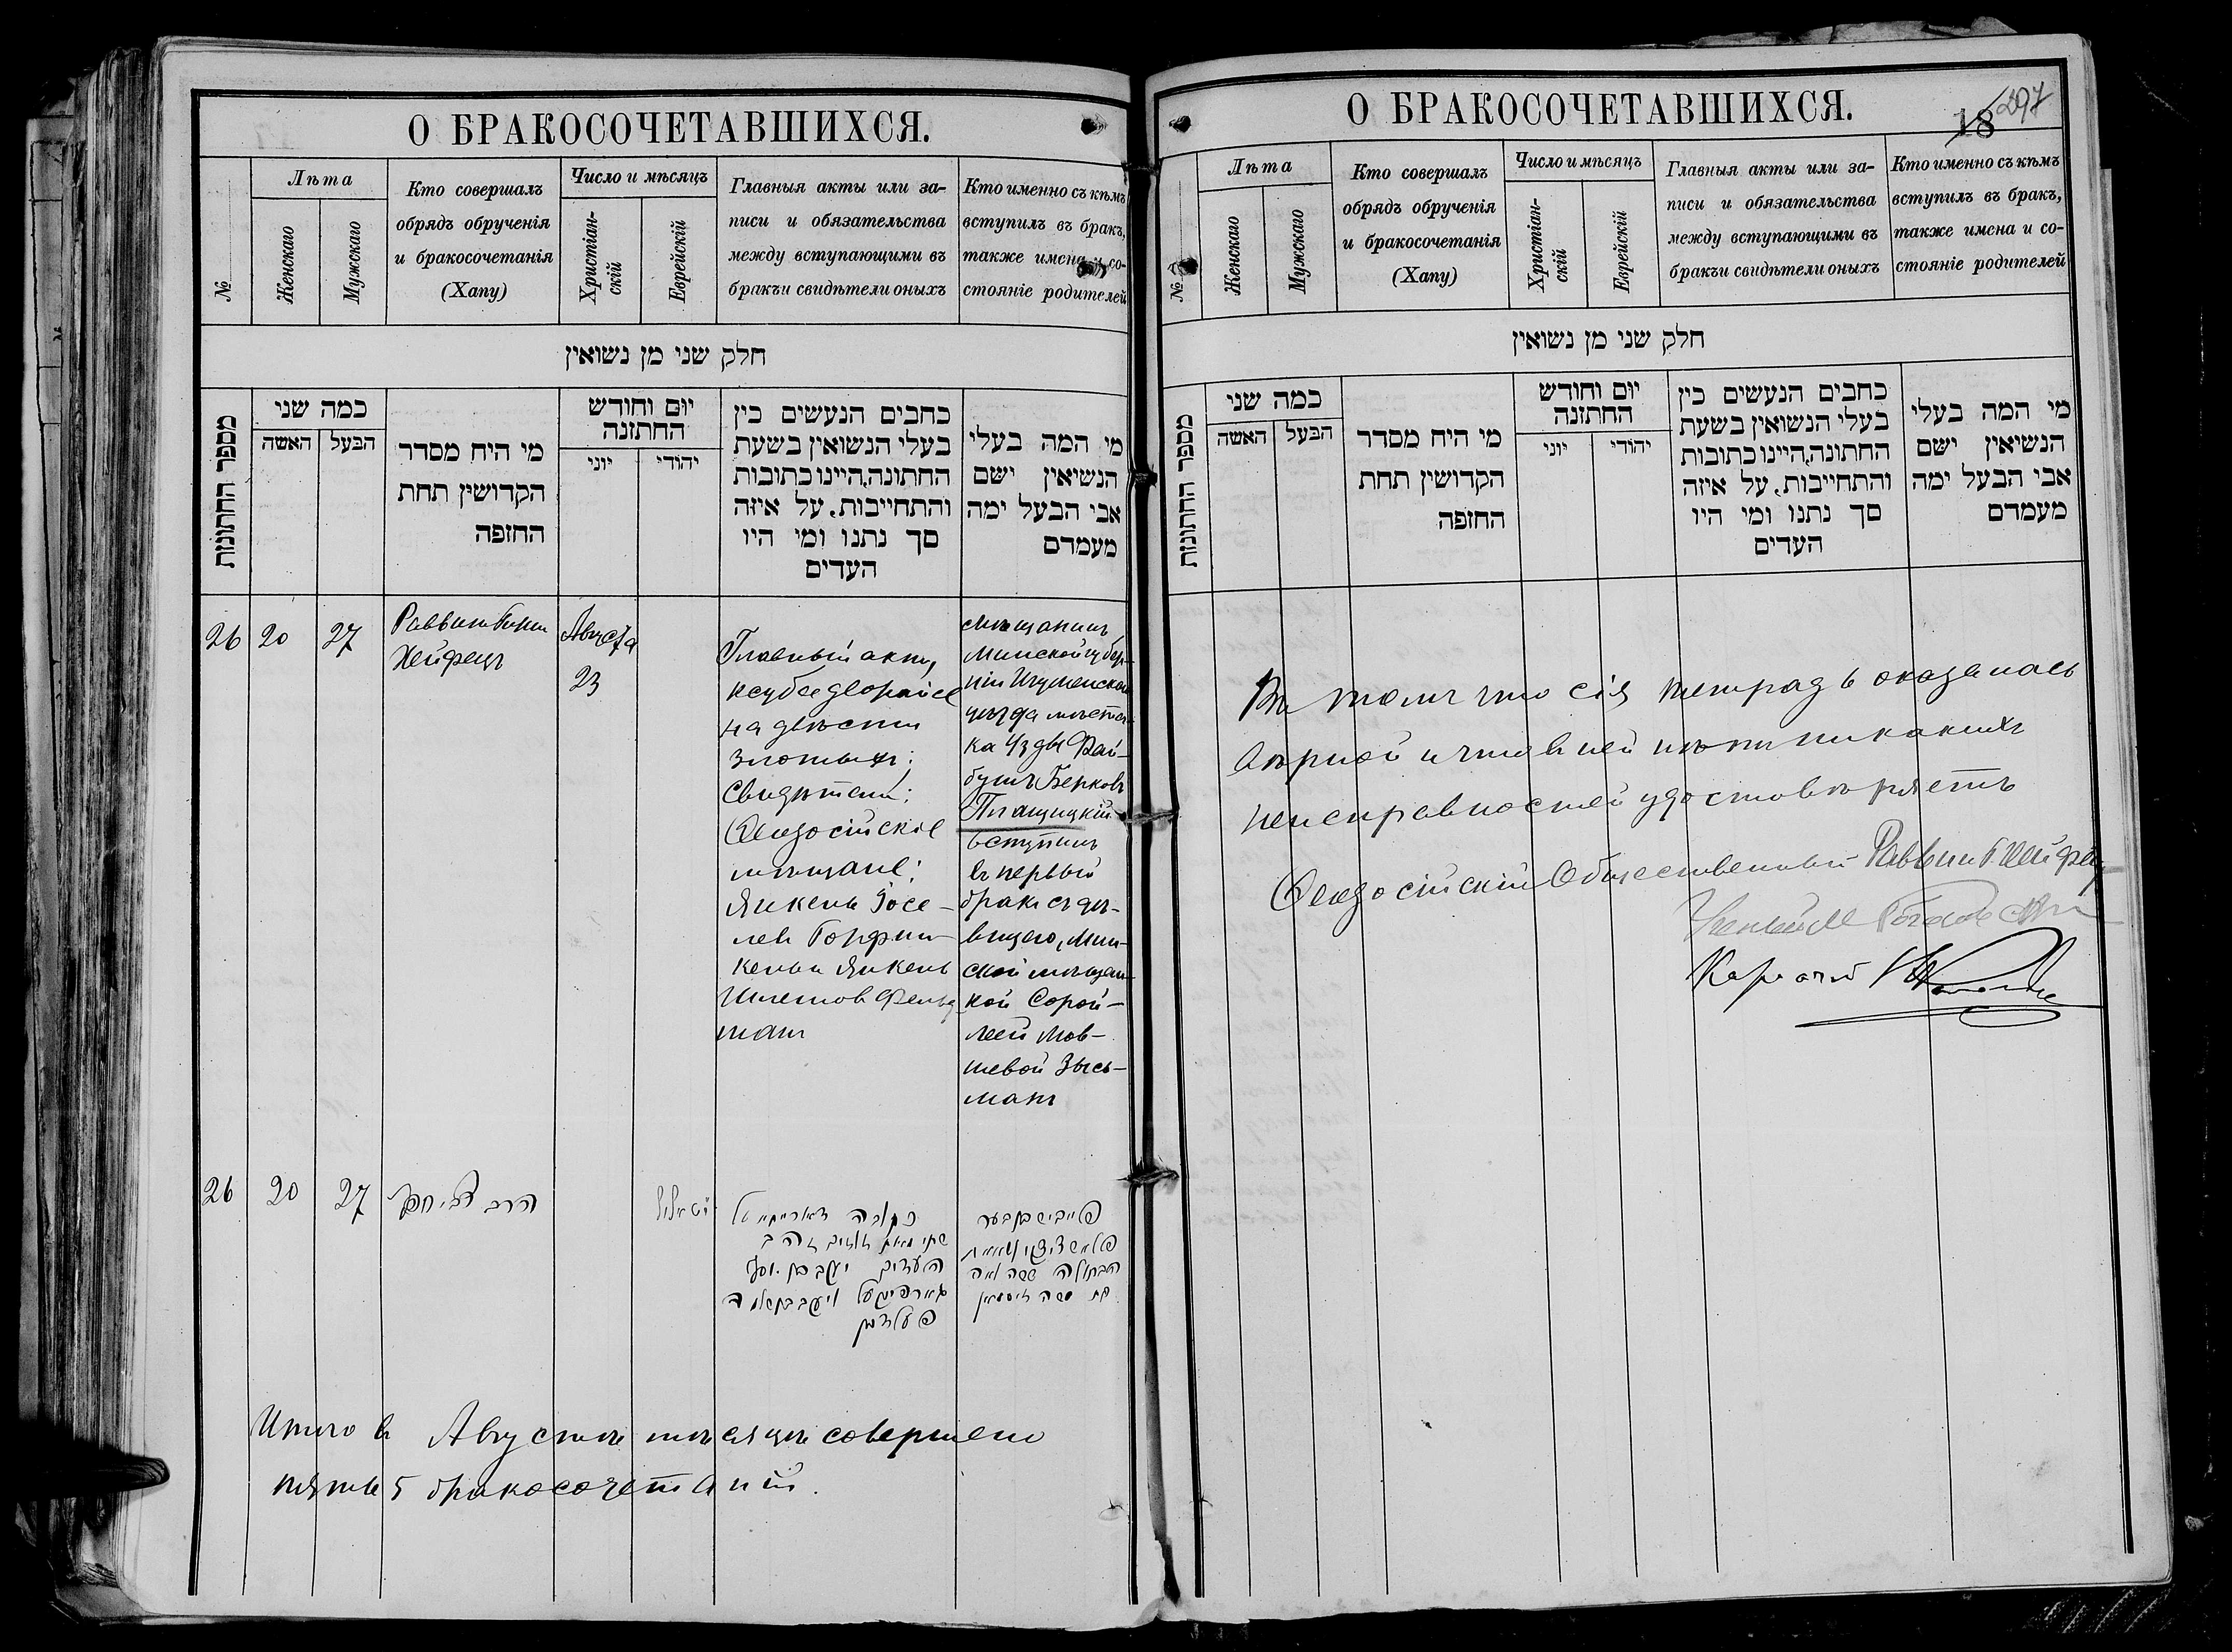 О БРАКОСОЧЕТАВШИХСЯ.
№
Лѣта
Женскаго
Мужскаго
Кто совершалъ
обрядъ обрученія
и бракосочетанія
(Хапу)
Число и мѣсяцъ
Христіан-
скій
Еврейскій
Главныя акты или за-
писи и обязательства
между вступающими въ
бракъи свидѣтели оныхъ
Кто именно съ кѣмъ
вступилъ въ бракъ,
также имена и со-
стояніе родителей
חלק שני מן נשואין
מספר החתונות
כמה שני
האשה
הבעל
מי היח מסדר
הקדושין תחת
החזפה
יום וחודש
החתונה
יוני
יהודי
כחבים הנעשים כין
בעלי הנשואין בשעת
החתונה, היינו כתובות
והתחייבות, על איזה
סך נתנו ומי היו
העדים
מי המה בעלי
הנשיאין ישם
אבי הבעל ימה
מעמדם
26
20
27
Раввинъ
Хейфецъ
Августа
23
Главный актъ,
ксубе деорайсе
на двѣсти
злотыхъ;
Свидѣтели:
Ѳеодосійскіе
мѣщане:
Янкель Іосе-
левъ Горфин-
кель и Янкель
Шлемовъ Фельд
манъ
Мѣщанинъ
Минской губер-
ніи Игуменскаго
уѣзда мѣстеч-
ка Узды Фай-
бушъ Берковъ
Плащицкій
вступилъ
въ первый
бракъ съ дѣ-
вицею, Мин-
ской мѣщан-
кой Сорой-
Леей Мов-
шевой Зысь-
манъ
26
20
27
הרב
כתובה דאורייתא על
שתי מאות זהובים
העדים יעקב בן יוסף
גארפינקעל ויעקב בן שלמה
פעלדמן
פייביש בן בער
הבתולה שרה לאה
בת משה זיסמאן
Итого въ Августѣ мѣсяцѣ совершено
пять 5 бракосочетаній.
О БРАКОСОЧЕТАВШИХСЯ.
18
297
№
Лѣта
Женскаго
Мужскаго
Кто совершалъ
обрядъ обрученія
и бракосочетанія
(Хапу)
Число и мѣсяцъ
Христіан-
скій
Еврейскій
Главныя акты или за-
писи и обязательства
между вступающими въ
бракъи свидѣтели оныхъ
Кто именно съ кѣмъ
вступилъ въ бракъ,
также имена и со-
стояніе родителей
חלק שני מן נשואין
מספר החתונות
כמה שני
האשה
הבעל
מי היח מסדר
הקדושין תחת
החזפה
יום וחודש
החתונה
יוני
יהודי
כחבים הנעשים כין
בעלי הנשואין בשעת
החתונה, היינו כתובות
והתחייבות, על איזה
סך נתנו ומי היו
העדים
מי המה בעלי
הנשיאין ישם
אבי הבעל ימה
מעמדם
Въ томъ что сія тетрадь оказалась
вѣрной и что въ ней нѣтъ никакихъ
неисправностей удостовѣряетъ
Ѳеодосійскій Общественный Раввинъ Б. Хейфецъ